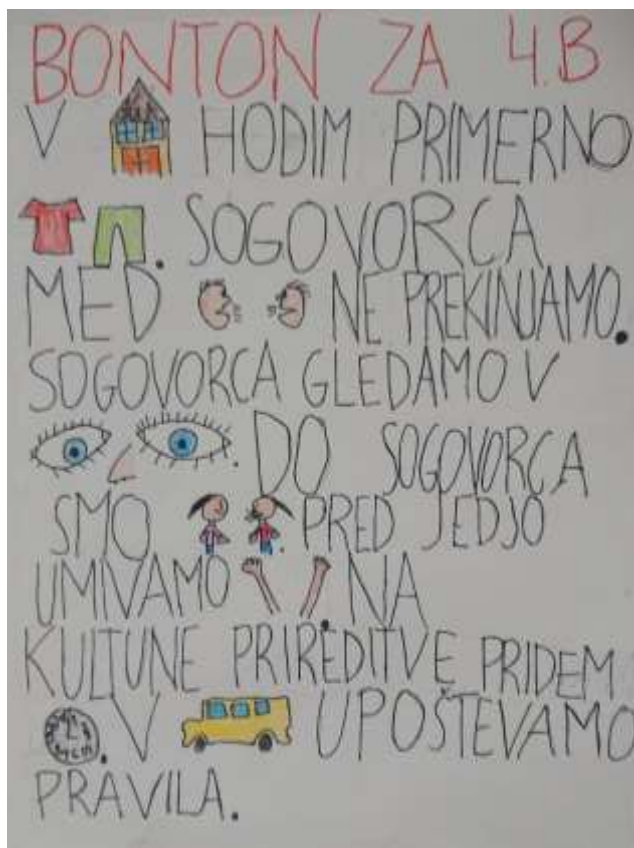 BONTON ZA 4.B
V HODIM PRIMERNO
. SOGOVORCA
MED NE PREKINJAMO.
SOGOVORCA GLEDAMO V
. DO SOGOVORCA
SMO . PRED JEDJO
UMIVAMO . NA
KULTUNE PRIREDITVE PRIDEM
. V UPOŠTEVAMO
PRAVILA.